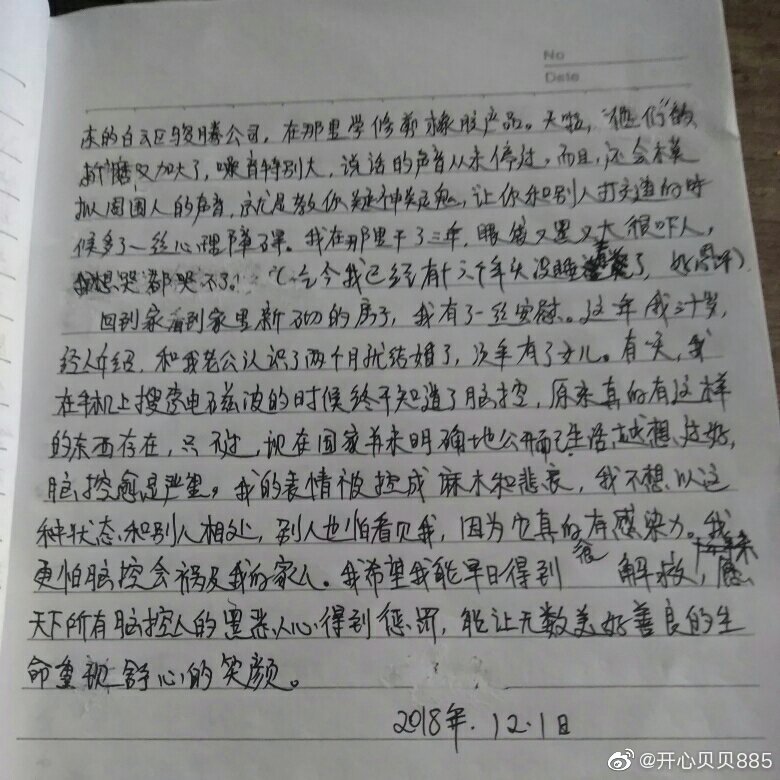 No
Date
东的白云区骏腾公司，在那里学修剪橡胶产品。天啦，"他们"的
折磨又加大了，噪音特别大，说话的声音从未停过，而且，还会模
拟周围人的声音，就是教你疑神疑鬼，让你和别人打交道的时
候多了一丝心理障碍。我在那里干了三年，眼袋又黑又大很吓人，
我想哭都哭不了。（迄今我已经有十六个年头没睡着觉了，
回到家看到家里新砌的房子，我有了一丝安慰。这年我三十岁，
经人介绍，和我老公认识了两个月就结婚了，次年有了女儿。有一天，我
在手机上搜索电磁波的时候终于知道了脑控，原来真的有这样
的东西存在，只不过，现在国家并未明确地公开而已生活越想过好，
脑控愈是严重。我的表情被控成麻木和悲哀，我不想以这
种状态和别人相处，别人也怕看见我，因为它真的有感染力。我
更怕脑控会祸及我的家人。我希望我能早日得到 解救，愿
天下所有脑控人的黑恶人心得到惩罚，能让无数美好善良的生
命重现舒心的笑颜。
2018年.12.1日
@开心贝贝885